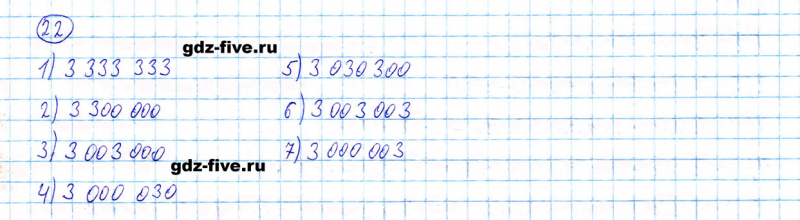 22
gdz-five.ru
1) 3 333 333
2) 3 300 000
3) 3 003 000
gdz-five.ru
4) 3 000 030
5) 3 030 300
6) 3 003 003
7) 3 000 003